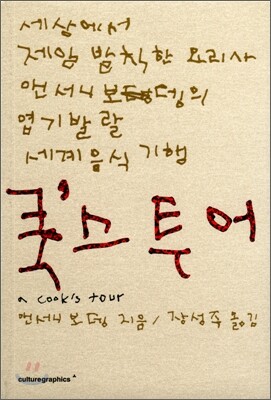 세상에서
제일 발칙한 요리사
앤서니 보뎅의
엽기발랄
세계음식 기행
쿡's 투어
a cook's tour
앤서니 보뎅 지음/장성주 옮김
culturegraphics